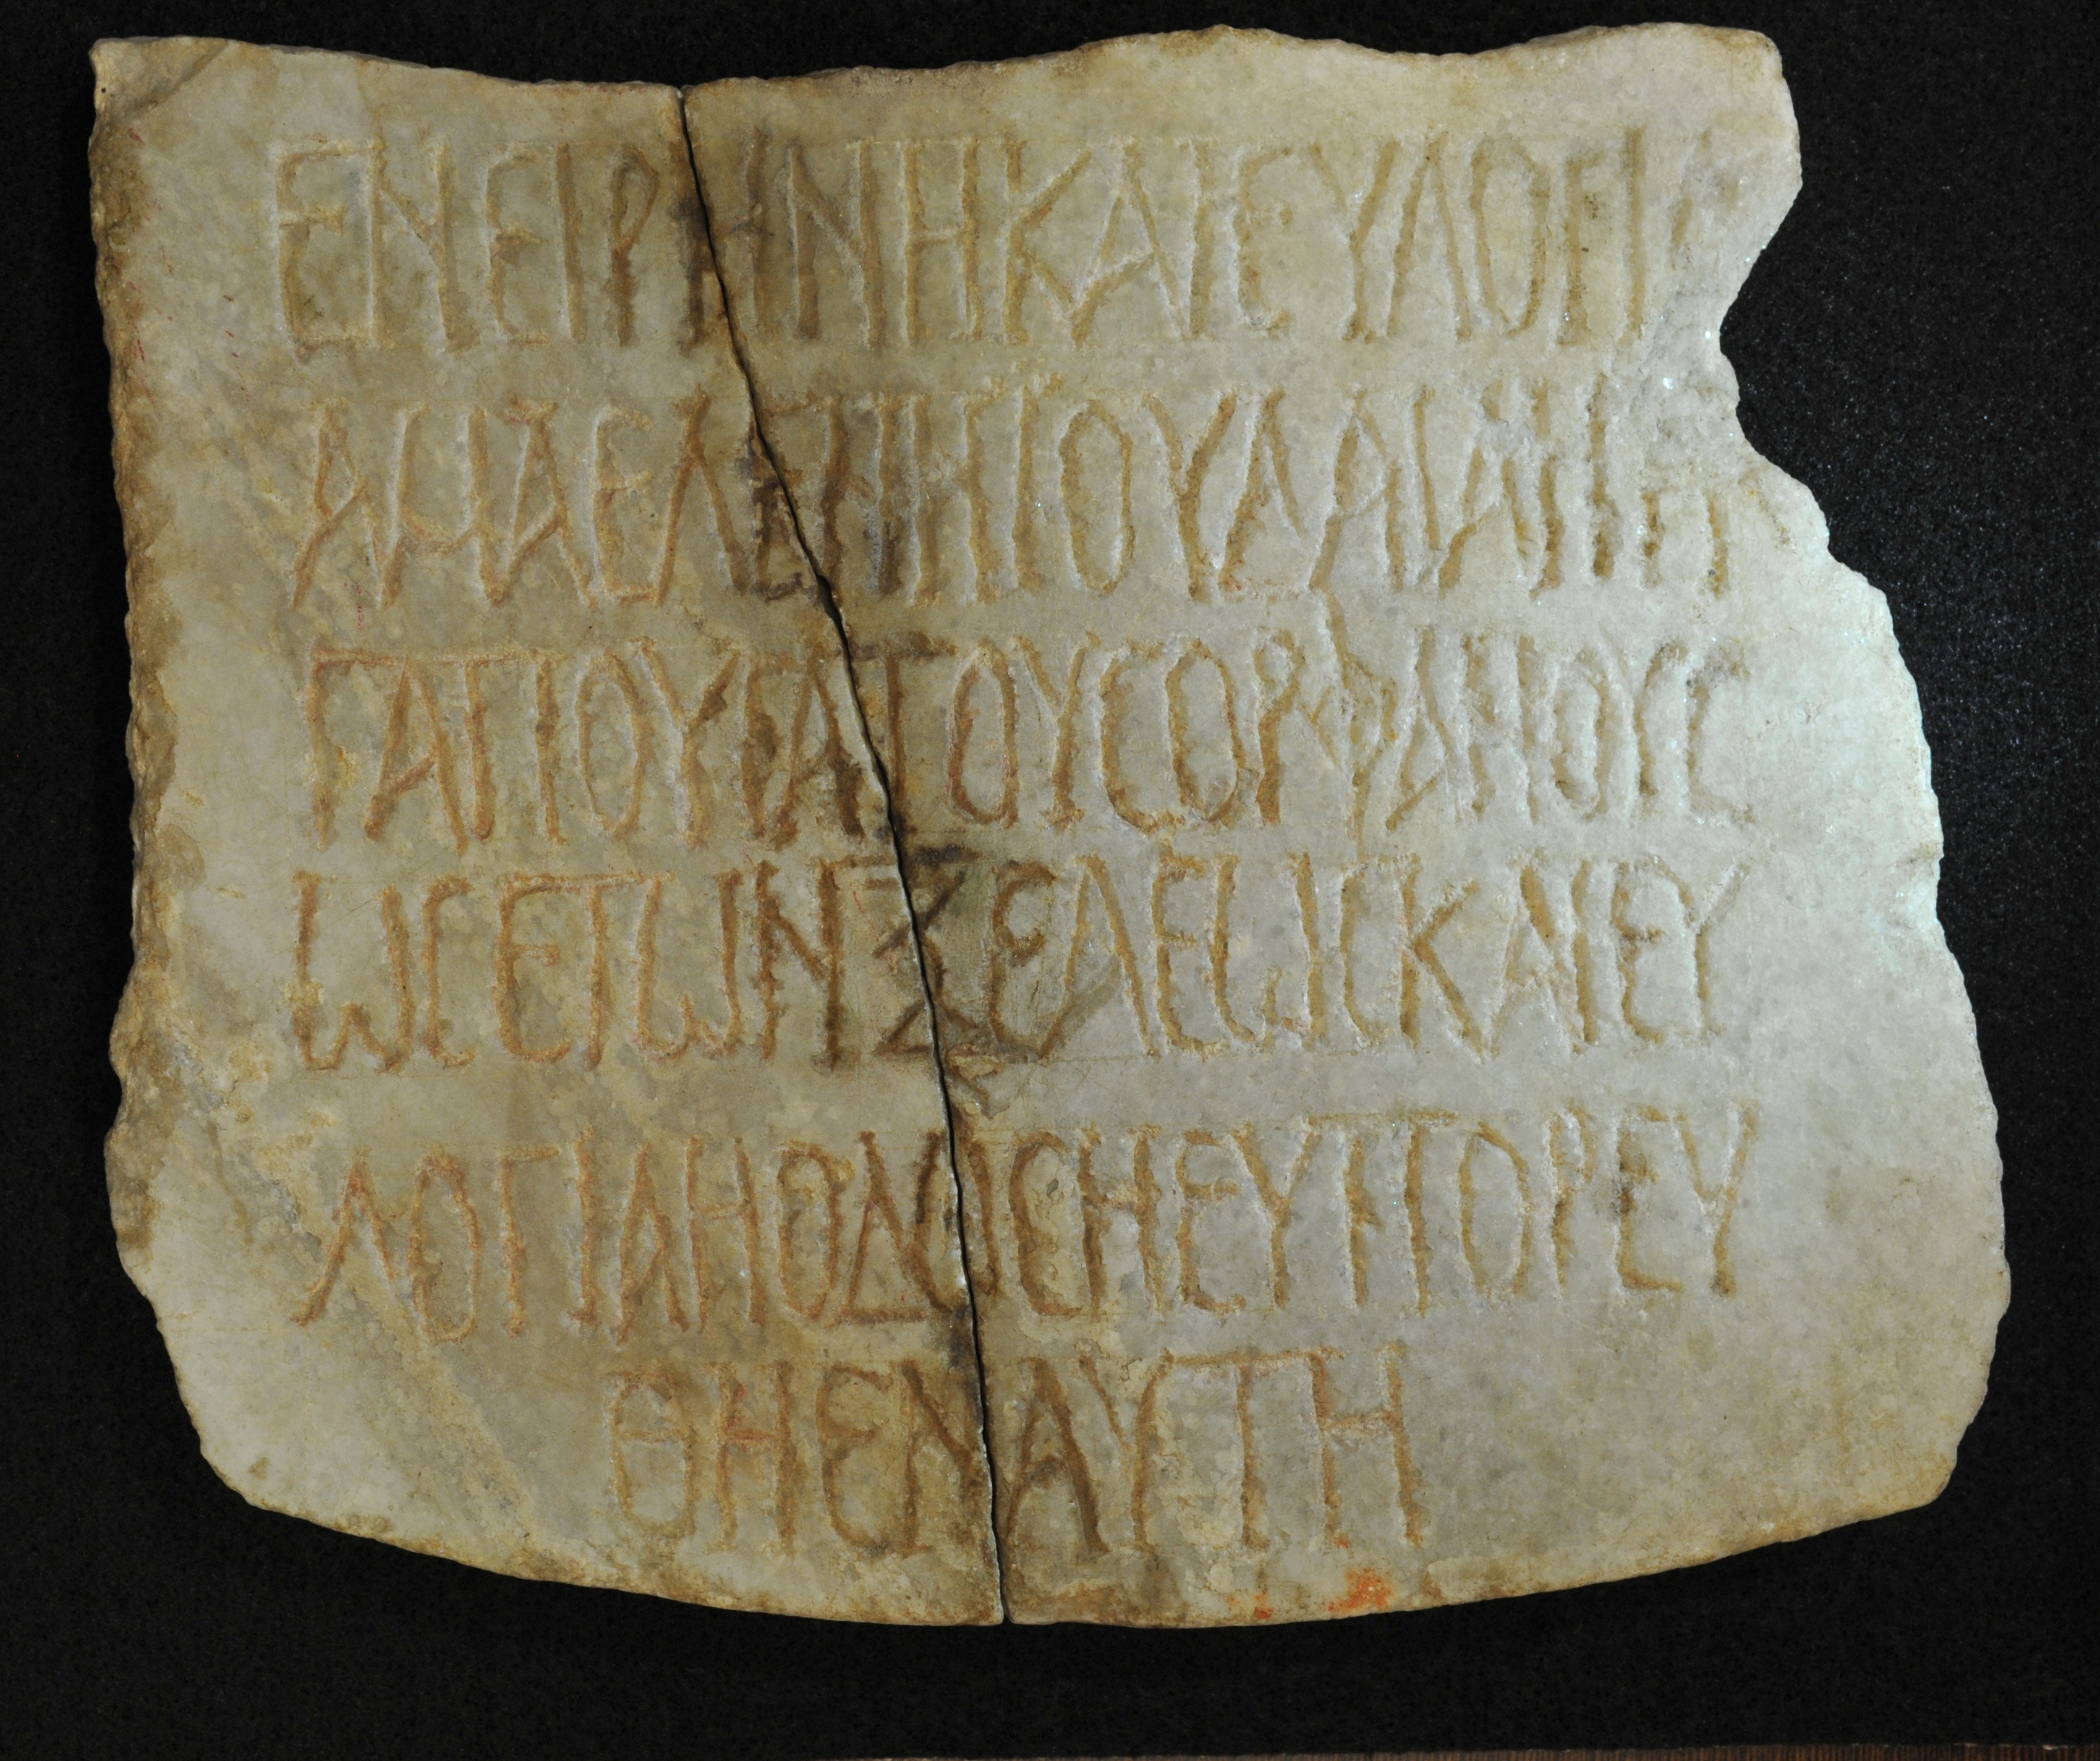 ΕΝΕΙΡΗΝΗΚΑΙΕΥΛΟΓΙ
ΑΜΑΕΛΕΝΗΙΟΥΔΑΙΑΗΑ
ΓΑΠΟΥϹΑΤΟΥϹΟΡΦΑΝΟΥϹ
ΩϹΕΤΩΝΞΕΛΕΩϹΚΑΙΕΥ
ΛΟΓΙΑΗΟΔΟϹΗΕΥΠΟΡΕΥ
ΘΗΕΝΑΥΤΗ